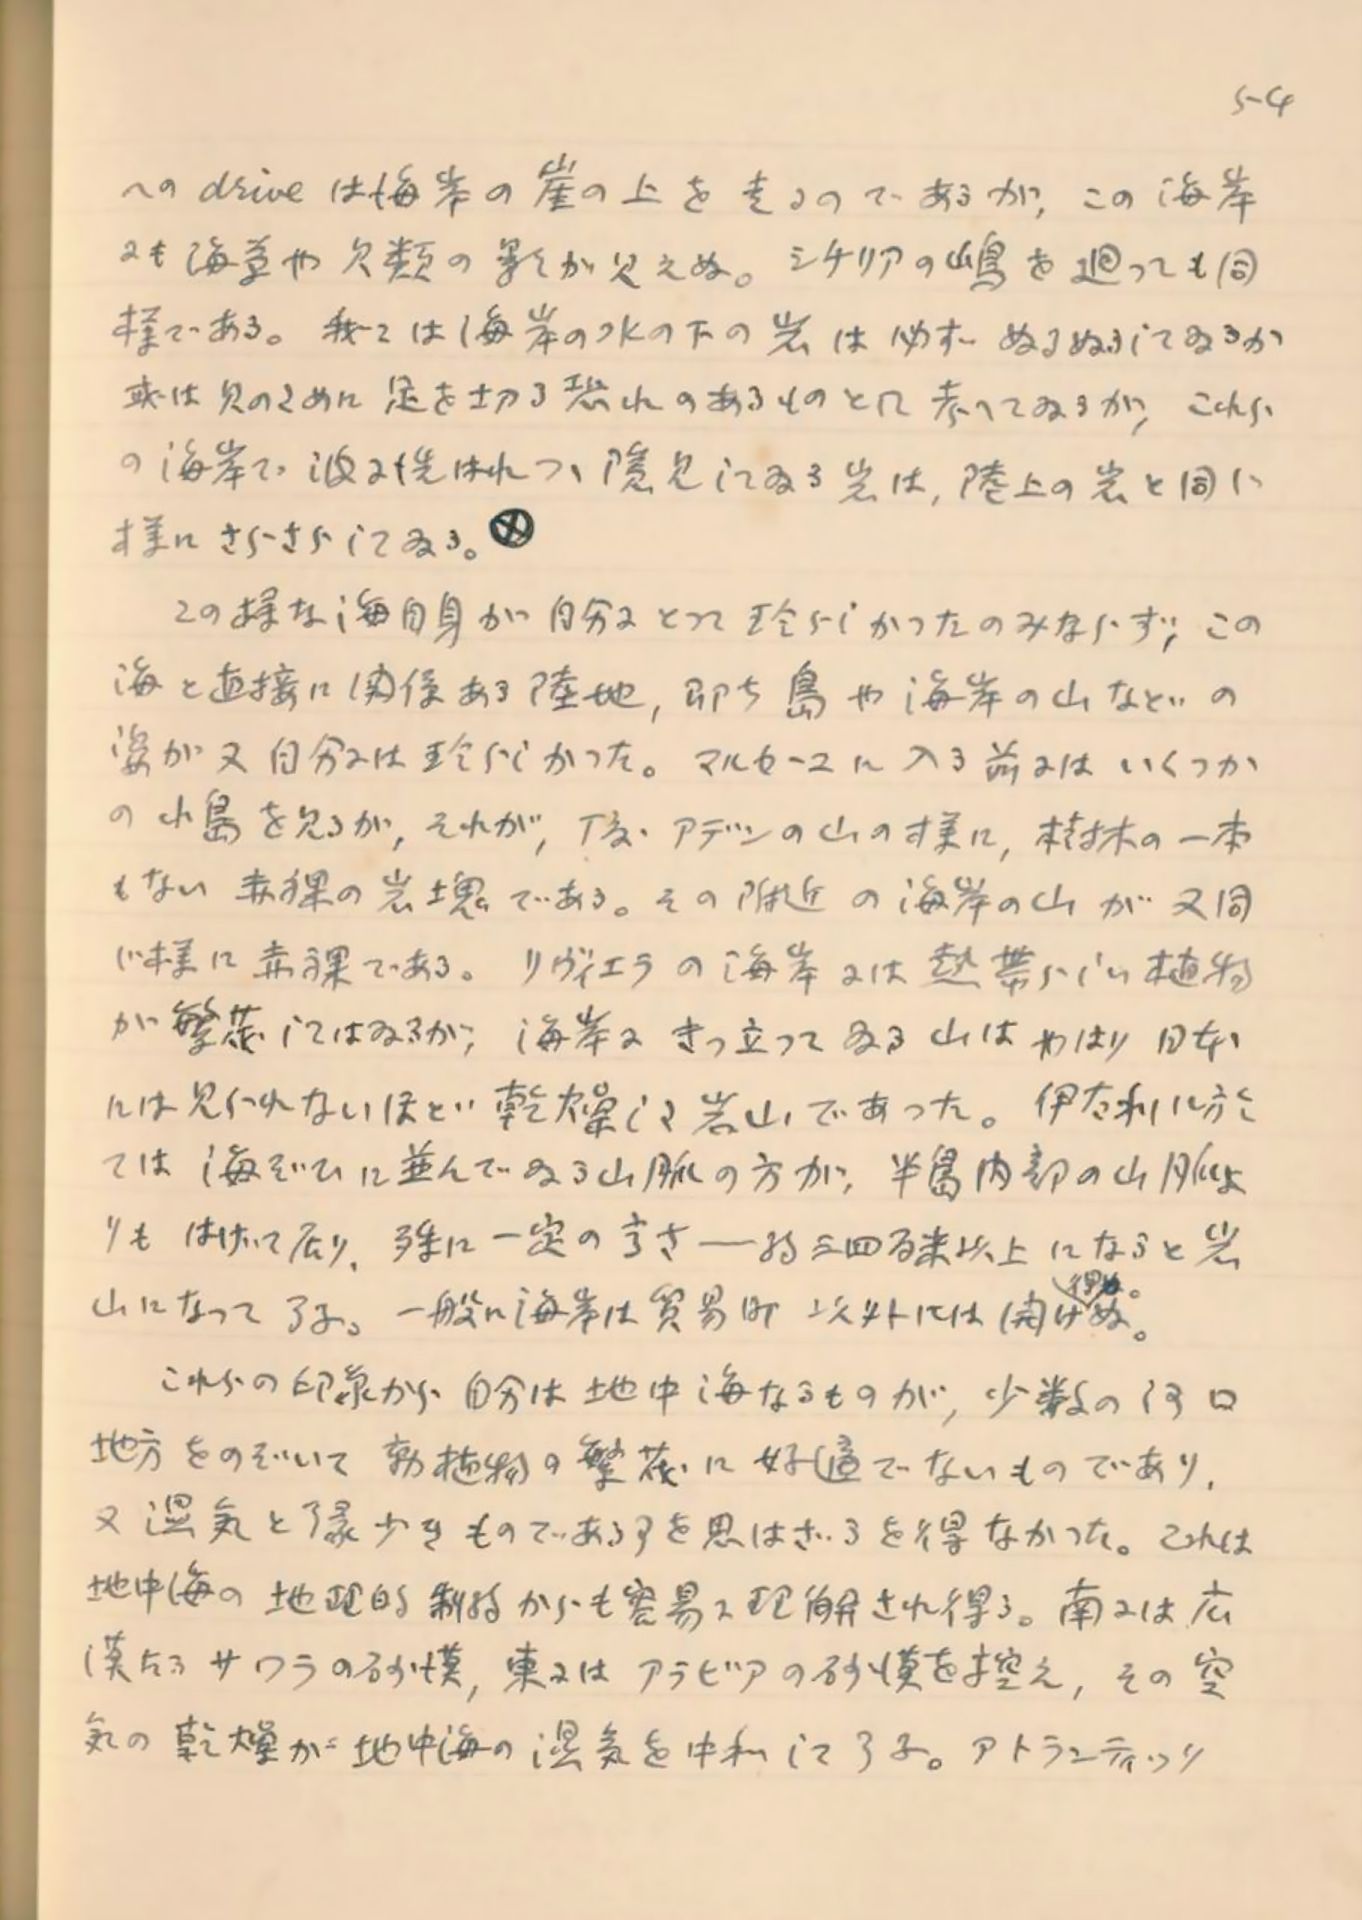 5-4
へのdriveは海岸の崖の上を走るのであるが,この海岸
にも海草や貝類の影が見えぬ。シチリアの嶋を廻っても同
様である。我々は海岸の水の下の岩は必ずぬるぬるしてゐるか
或は貝のために足を切る恐れのあるものとして考へてゐるが,これら
の海岸で波に洗はれつゝ隠見してゐる岩は,陸上の岩と同じ
様にさらさらしてゐる。
この様な海自身が自分にとって珍らしかったのみならず,この
海と直接に関係ある陸地,即ち島や海岸の山などの
姿が又自分には珍らしかった。マルセーユに入る前にはいくつか
の小島を見るが,それが,丁度アデンの山の様に,樹木の一本
もない赤裸の岩塊である。その附近の海岸の山が又同
じ様に赤裸である。リヴィエラの海岸には熱帯らしい植物
が繁茂してはゐるが,海岸にきっ立ってゐる山はやはり日本
には見られないほど乾燥した岩山であった。伊太利に於
ては海ぞひに並んでゐる山脈の方が,半島内部の山脈よ
りもはげて居り,殊に一定の高さ——約三四百米以上になると岩
山になって了ふ。一般に海岸は貿易町以外には開け得ぬ。
これらの印象から自分は地中海なるものが,少数の河口
地方をのぞいて動植物の繁茂に好適でないものであり,
又湿気と縁少きものである事を思はざるを得なかった。これは
地中海の地理的制約からも容易に理解され得る。南には広
漠たるサワラの砂漠,東にはアラビアの砂漠を控え,その空
気の乾燥が地中海の湿気を中和して了ふ。アトランティック